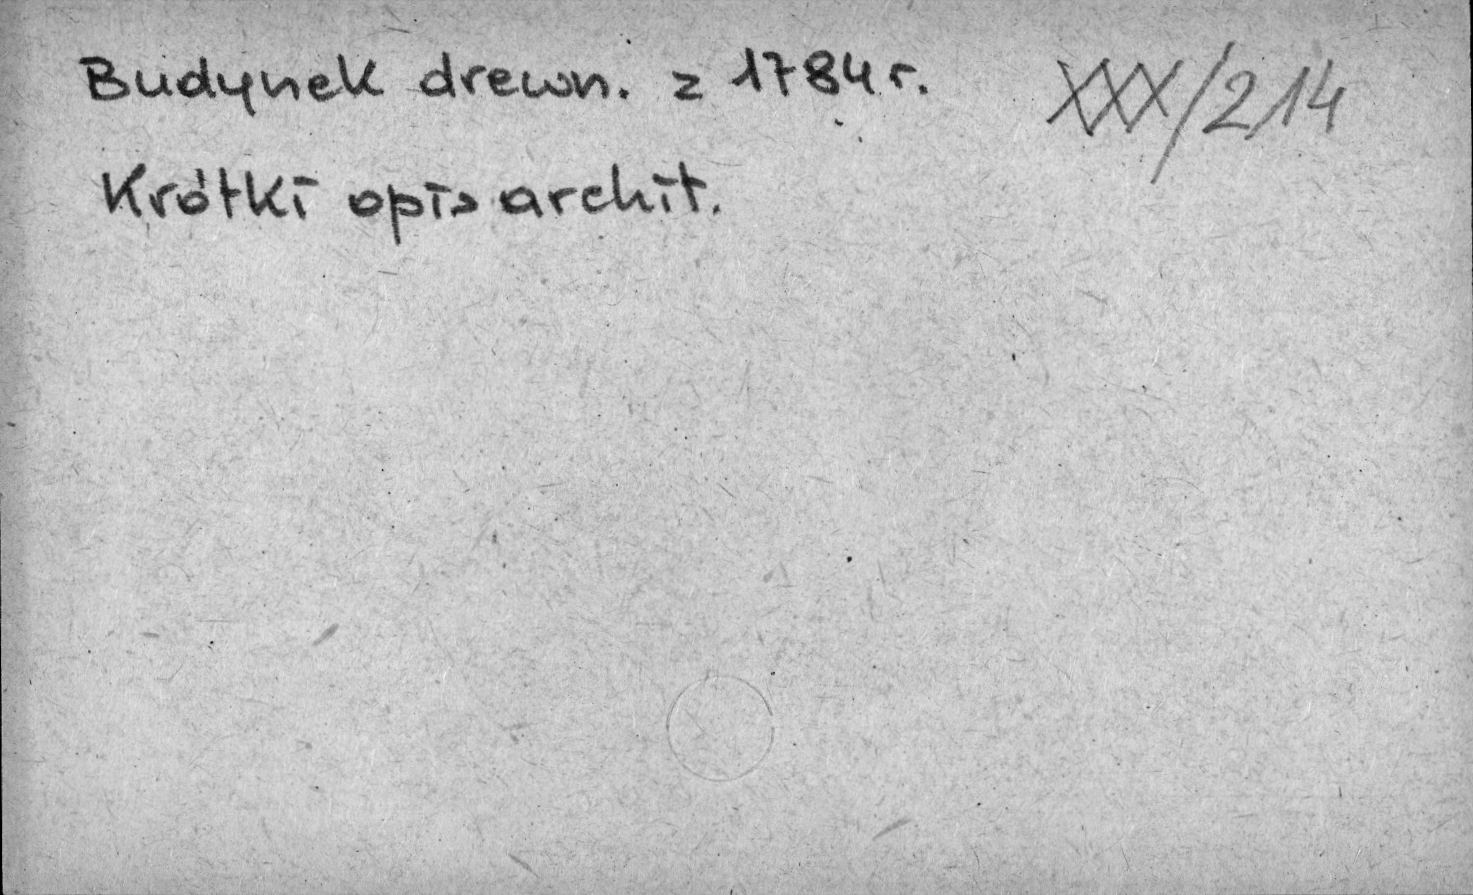 Budynek drewn. z 1784 r.
XXX/214
Krótki opis archit.